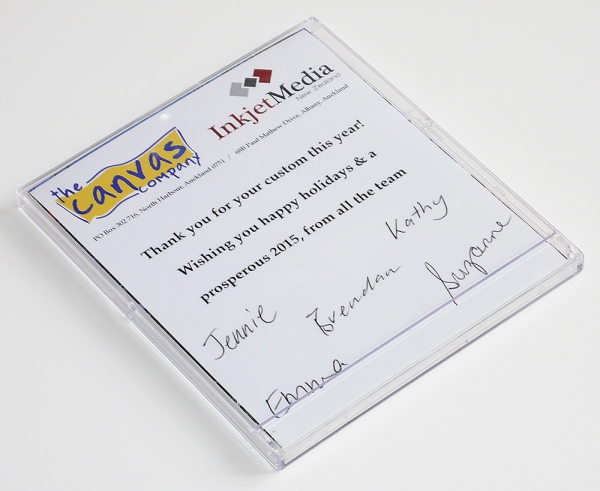 the
canvas
company
InkjetMedia
New Zealand
PO Box 302 716, North Harbour, Auckland 0751 / 68B Paul Mathew Drive, Albany, Auckland
Thank you for your custom this year!
Wishing you happy holidays & a
prosperous 2015, from all the team
Jennie Brendan Kathy
Emma Suzanne